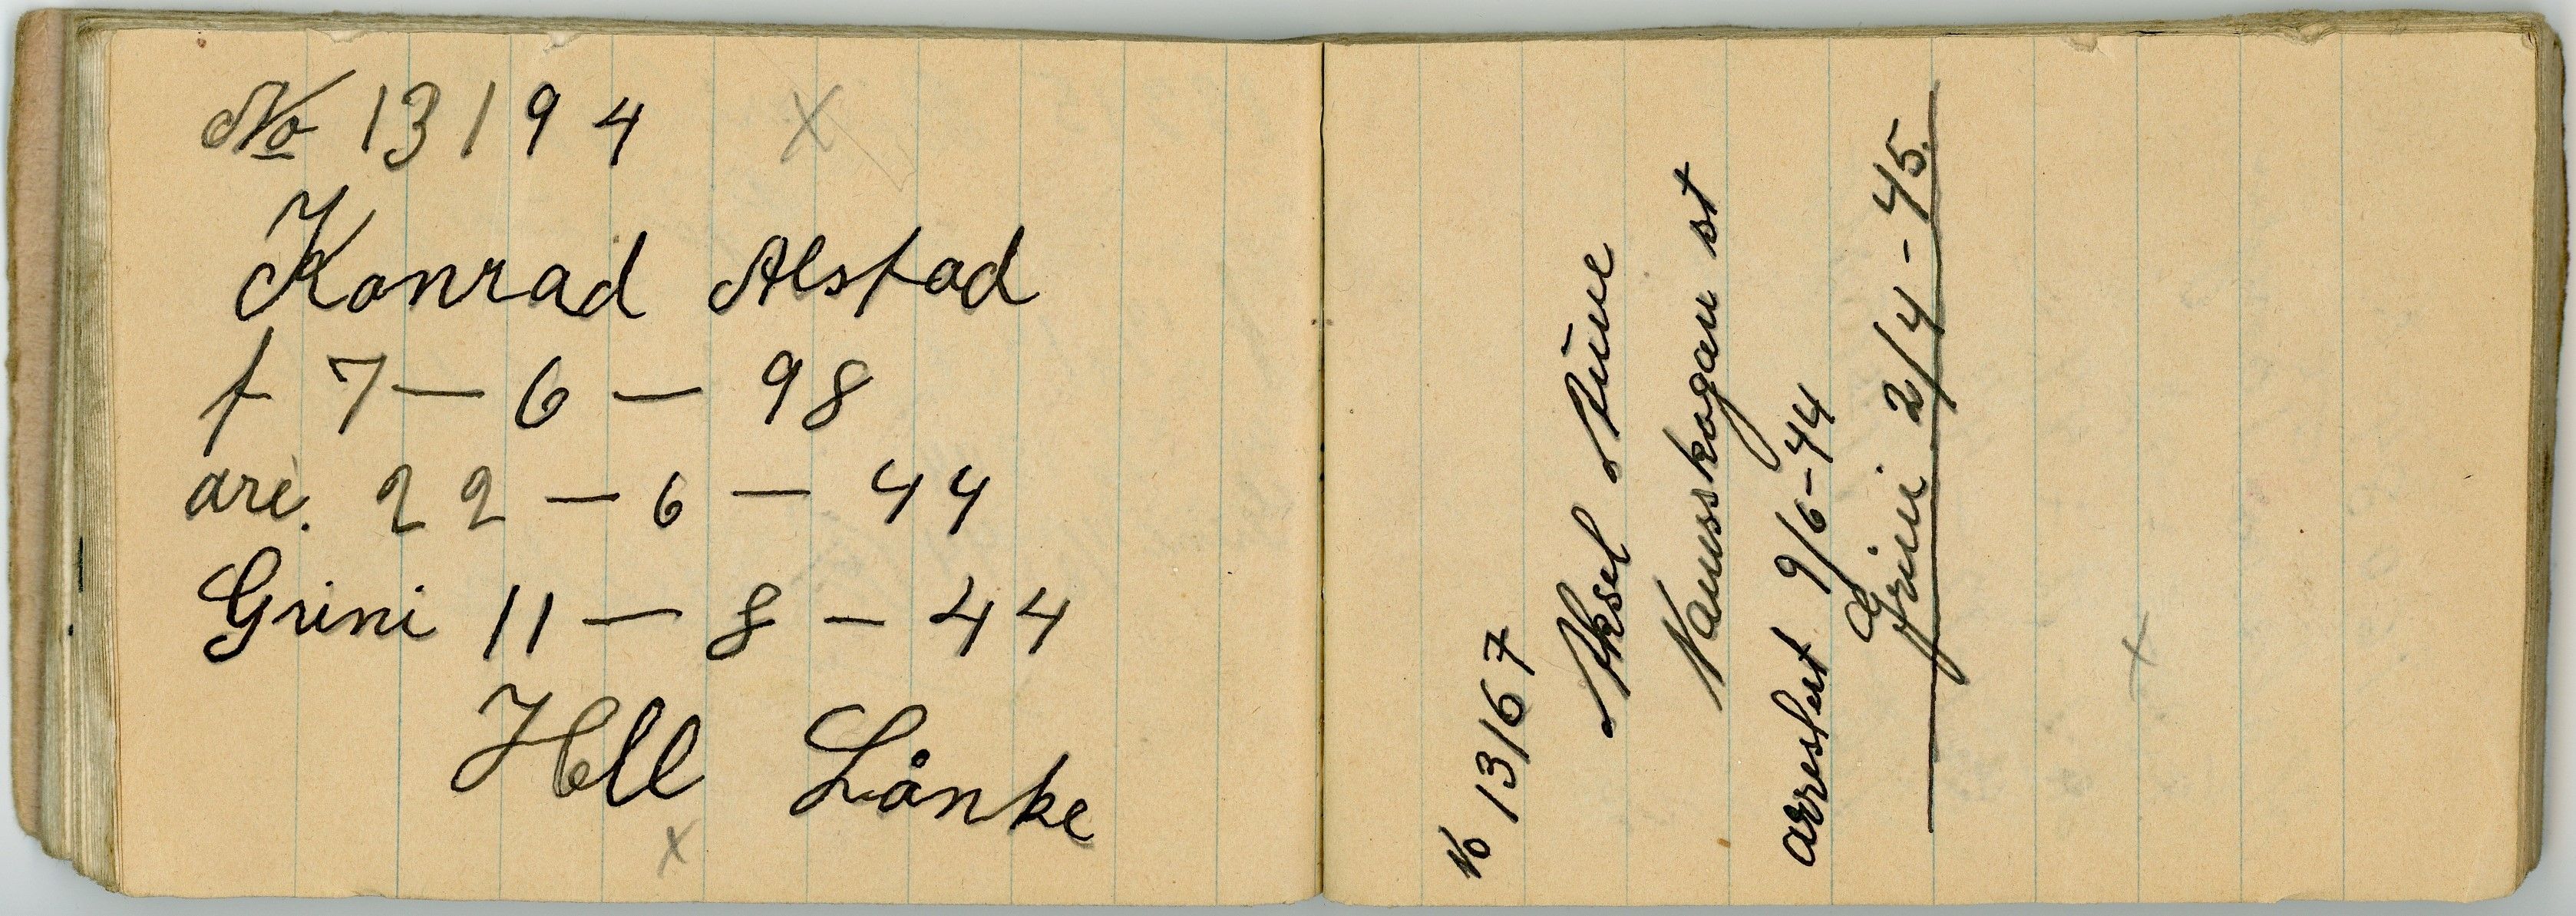 No 13194
Konrad Alstad
f 7 — 6 — 98
are. 22 — 6 — 44
Grini 11 — 8 — 44
Hell Lånke
No 13167
Aksel
Namsskogan st
arrestert 9/6-44
Grini 2/4-45.